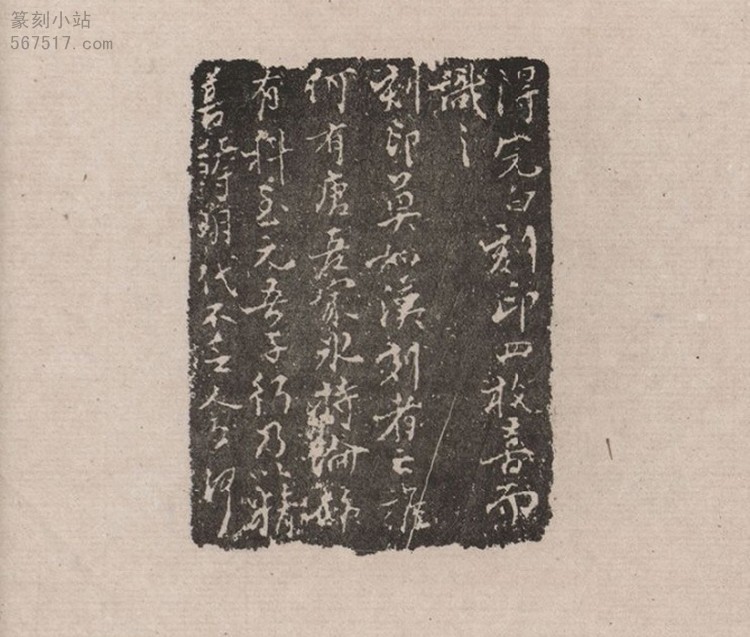 篆刻小站
567517.com
得完白刻印四枚喜而
識之
刻印莫如漢刻者亡誰
何有唐吾家冰論殊
有科至元吾子行乃以精
善明代不乏人